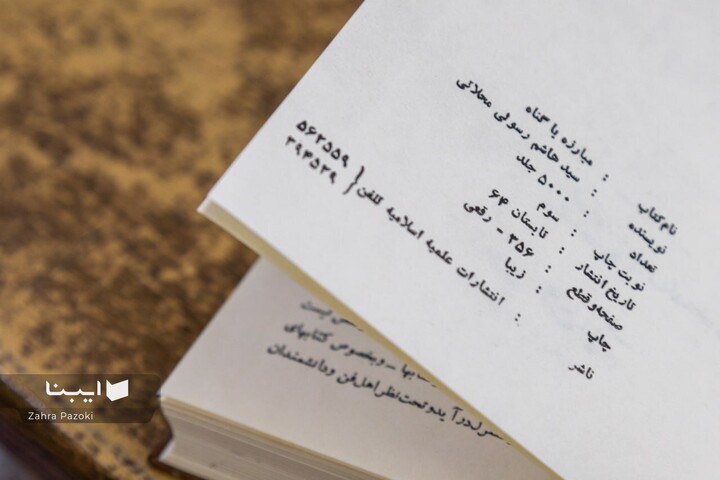 نام کتاب : مبارزه با گناه
نویسنده : سید هاشم رسولی محلاتی
تعداد : ۵۰۰۰ جلد
نوبت چاپ : سوم
تاریخ انتشار : تابستان ۶۴
صفحه و قطع : ۳۵۶ - رقعی
چاپ : زیبا
ناشر : انتشارات علمیه اسلامیه تلفن { ۵۶۲۵۵۹
۳۹۳۵۲۹ }
نیست
وبخصوص کتابهای
در آید و تحت نظر اهل فن و دانشمندان
ایبنا
Zahra Pazoki